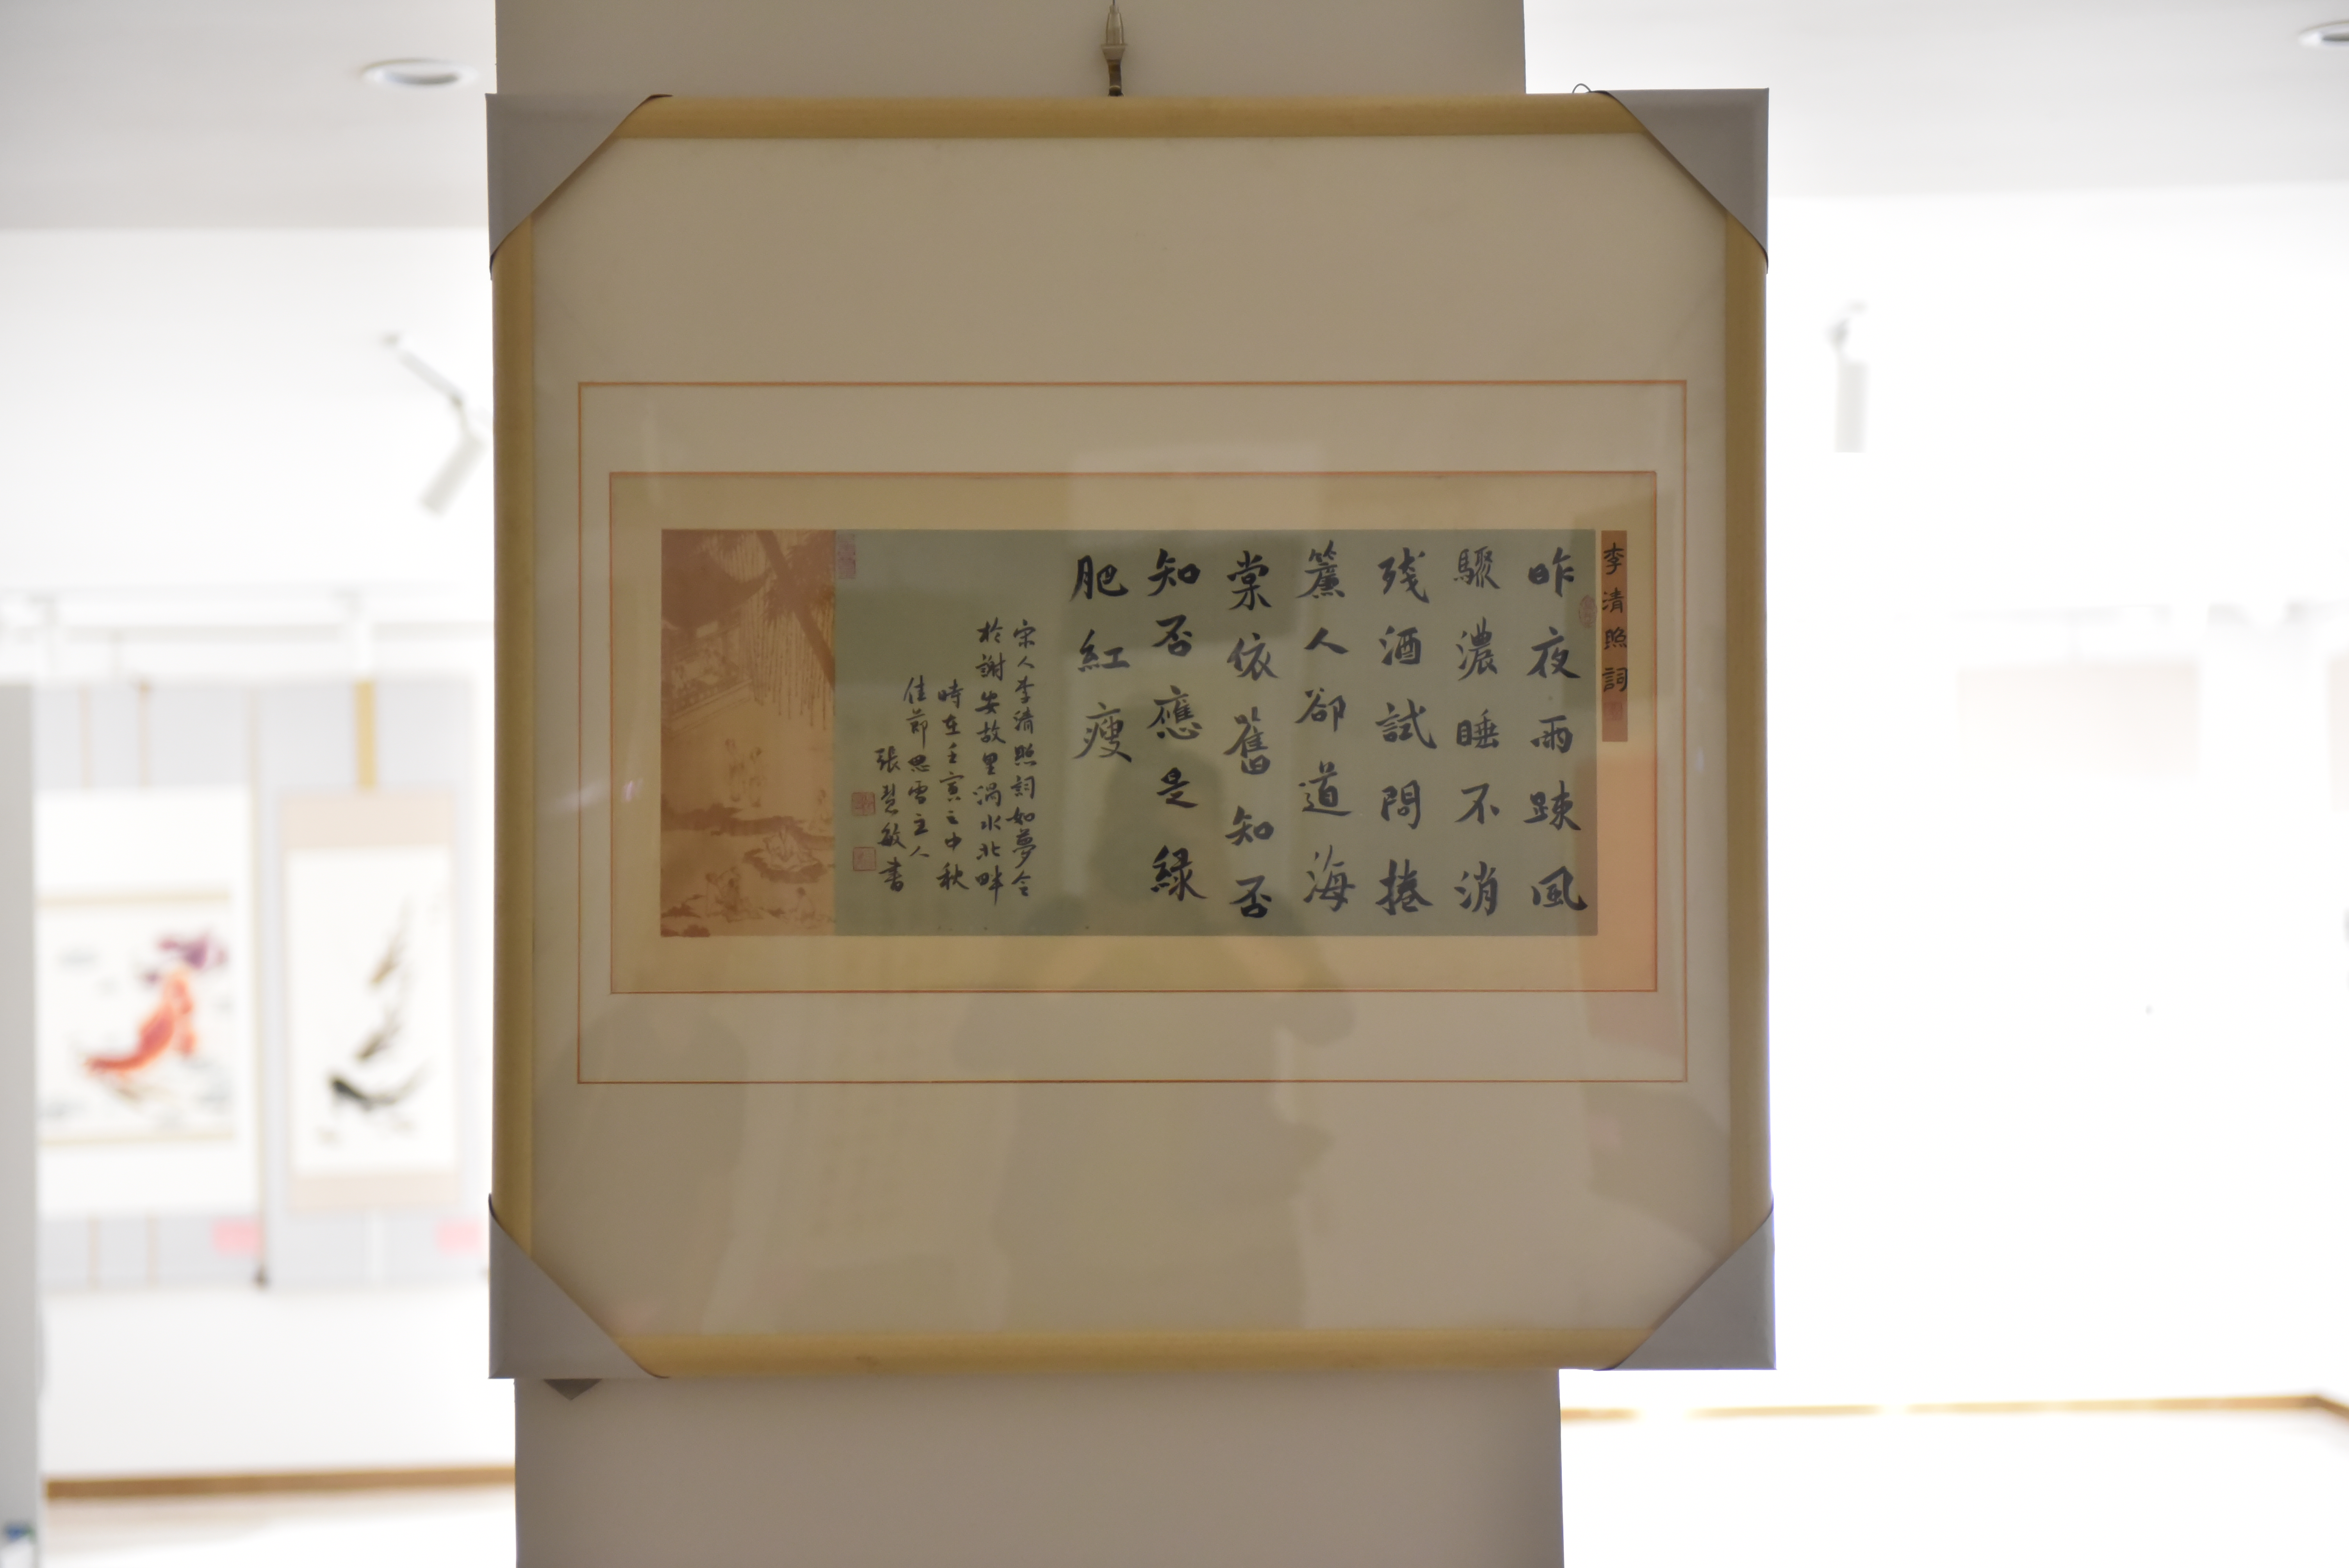 李清照詞
昨夜雨踈風
驟濃睡不消
残酒試問捲
簾人卻道海
棠依舊知否
知否應是緑
肥紅瘦
宋人李清照詞如夢令
於謝安故里渦水北畔
時在壬寅之中秋
佳節思雪主人
張慧敏書